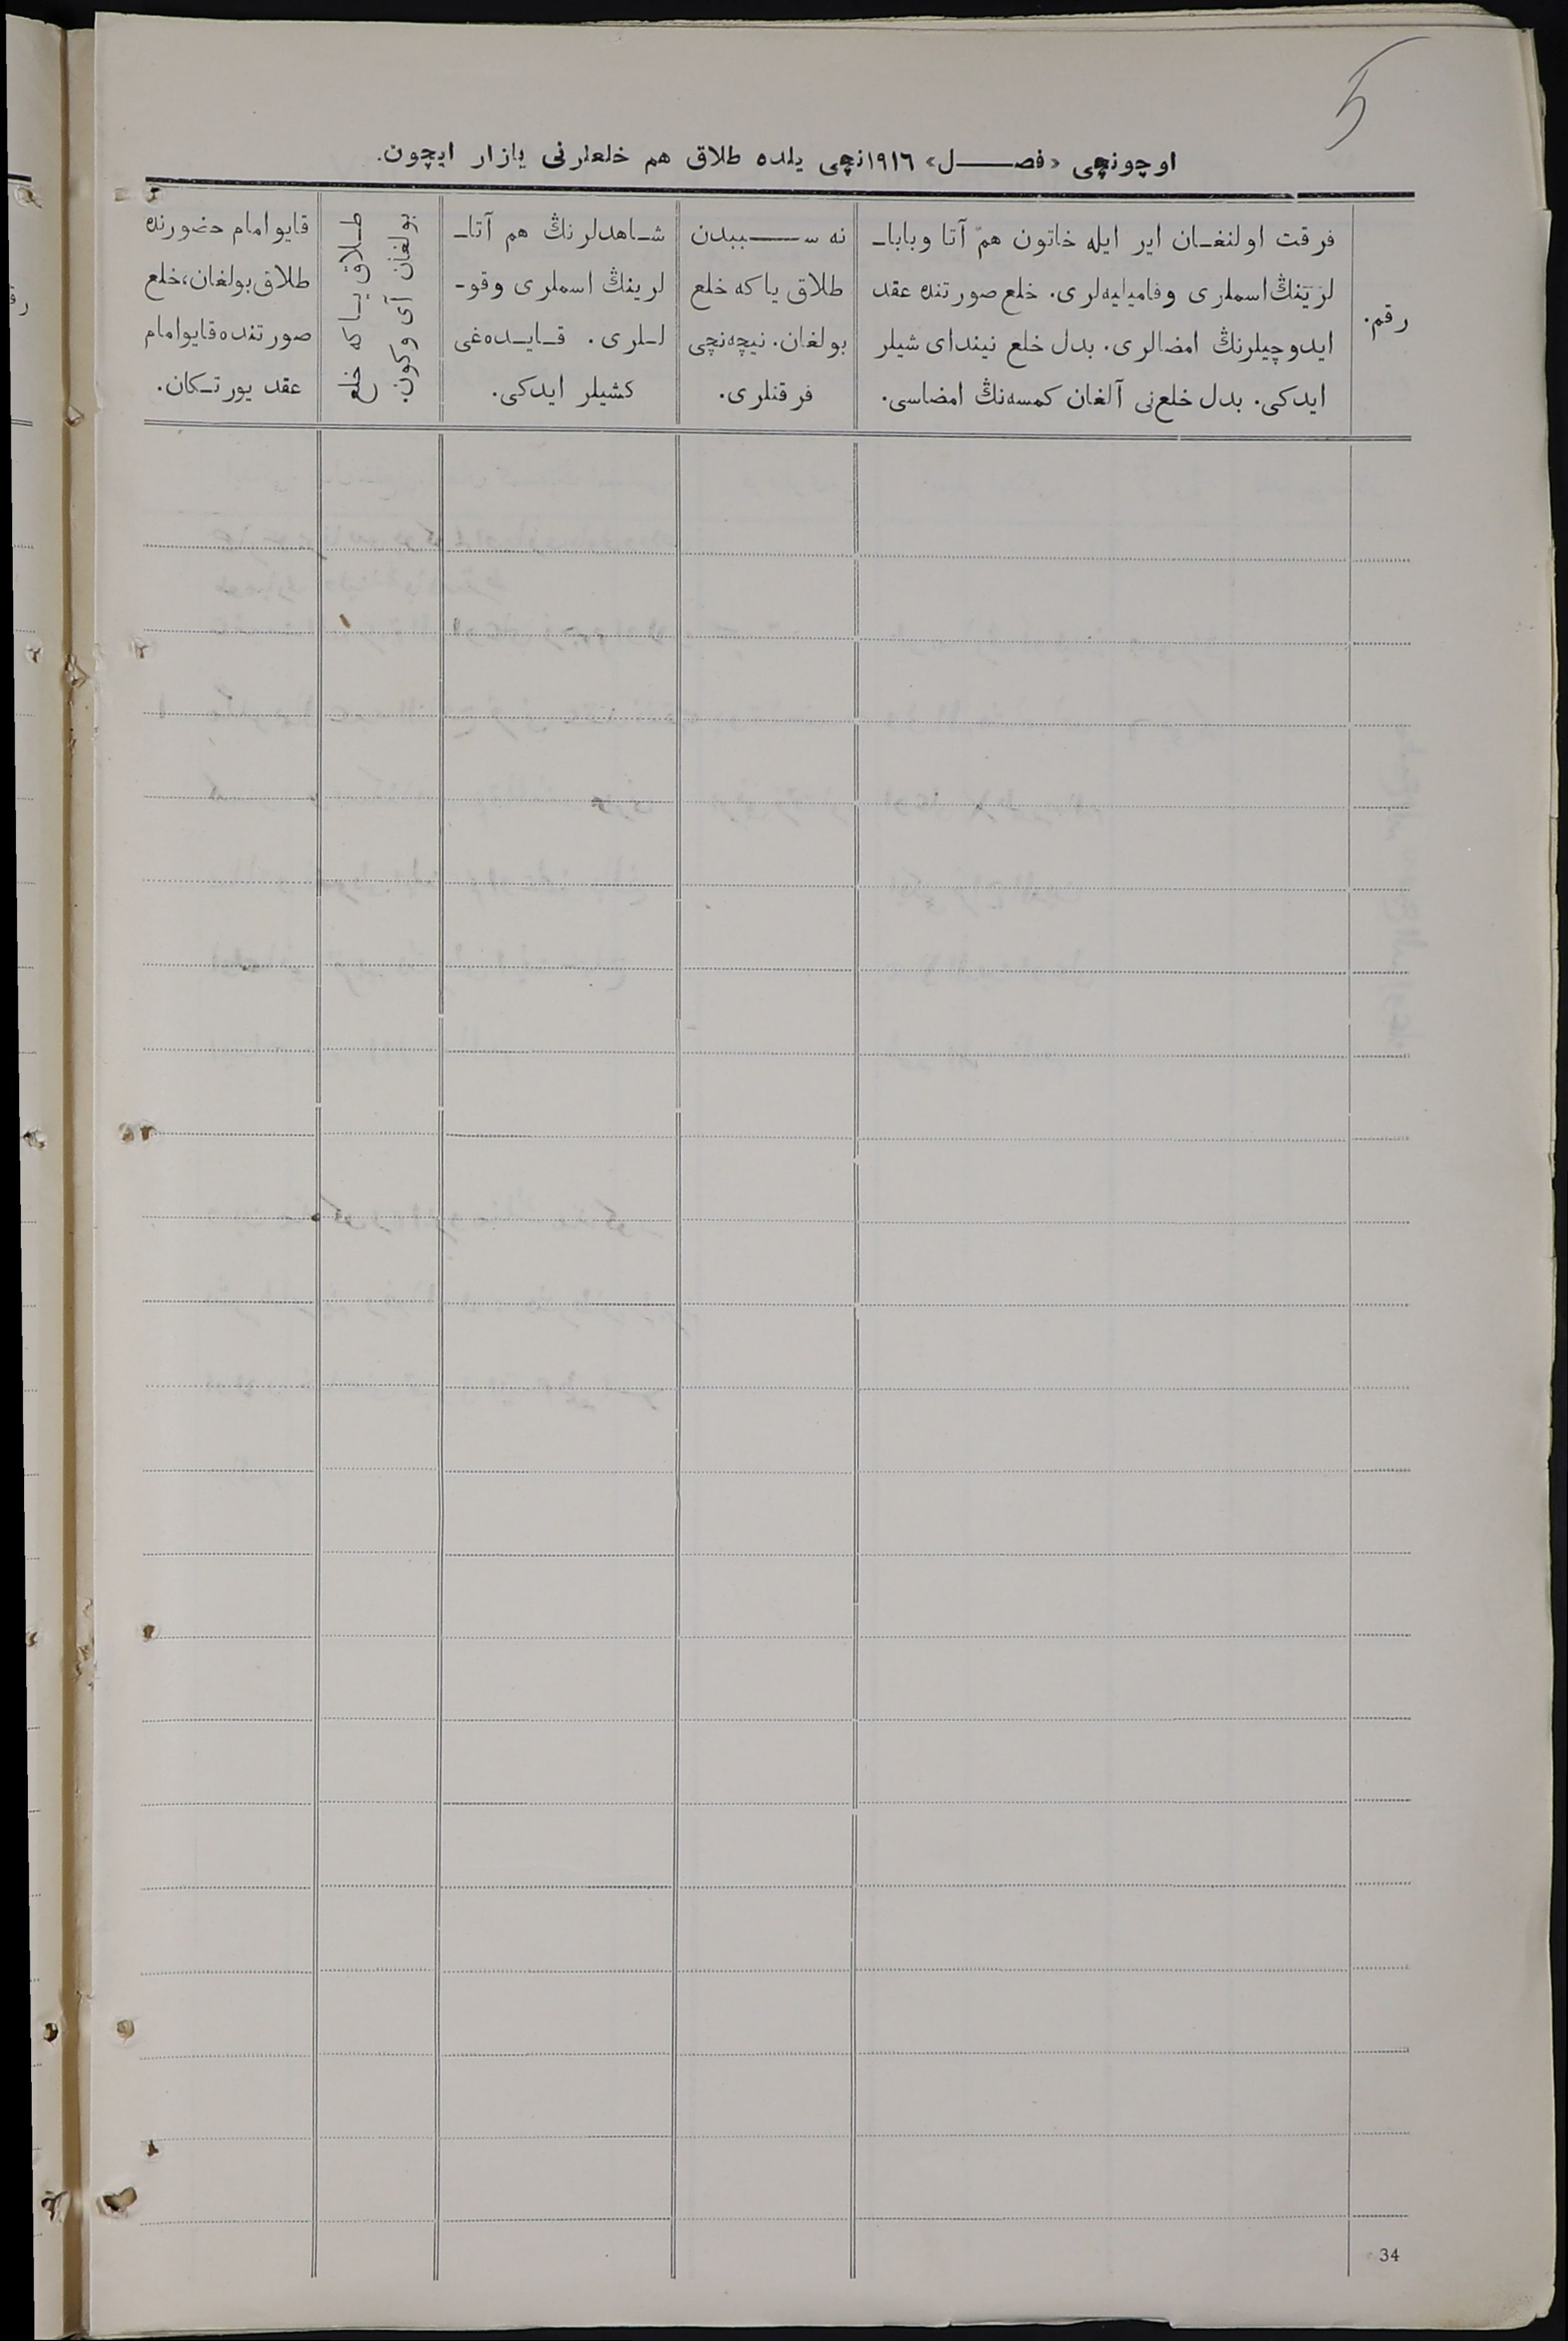 5
اوچونچی «فصل» ۱۹۱٦نچی یلده طلاق هم خلعلرنی یازار ایچون.
رقم.
فرقت اولنغان ایر ایله خاتون هم آتا وبابا-
لرینڭ اسملری وفامیلیه‌لری. خلع صورتنده عقد
ایدوچیلرنڭ امضالری. بدل خلع نیندای شیلر
ایدکی. بدل خلع‌نی آلغان کمسه‌نڭ امضاسی.
نه سببدن
طلاق یا که خلع
بولغان. نیچه‌نچی
فرقتلری.
شاهدلرنڭ هم آتا-
لرینڭ اسملری وقو-
للری. قایده‌غی
کشیلر ایدکی.
طلاق یا که خلع
بولغان آی وکون.
قایو امام حضورنده
طلاق بولغان، خلع
صورتنده قایو امام
عقد یورتکان.
34